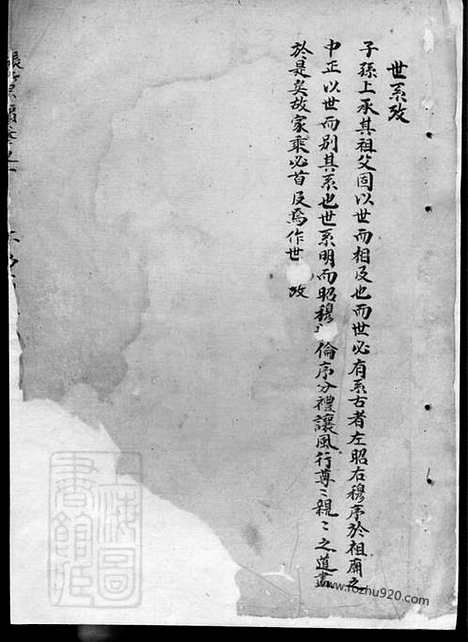 世系攷
子孫上承其祖父固以世而相及也而世必有系古者左昭右穆序於祖廟之
中正以世而別其系也世系明而昭穆倫序分禮讓風行尊〻親〻之道盡
於是矣故家乘必首及焉作世攷
張
上海圖書館藏
www.fozhu920.com